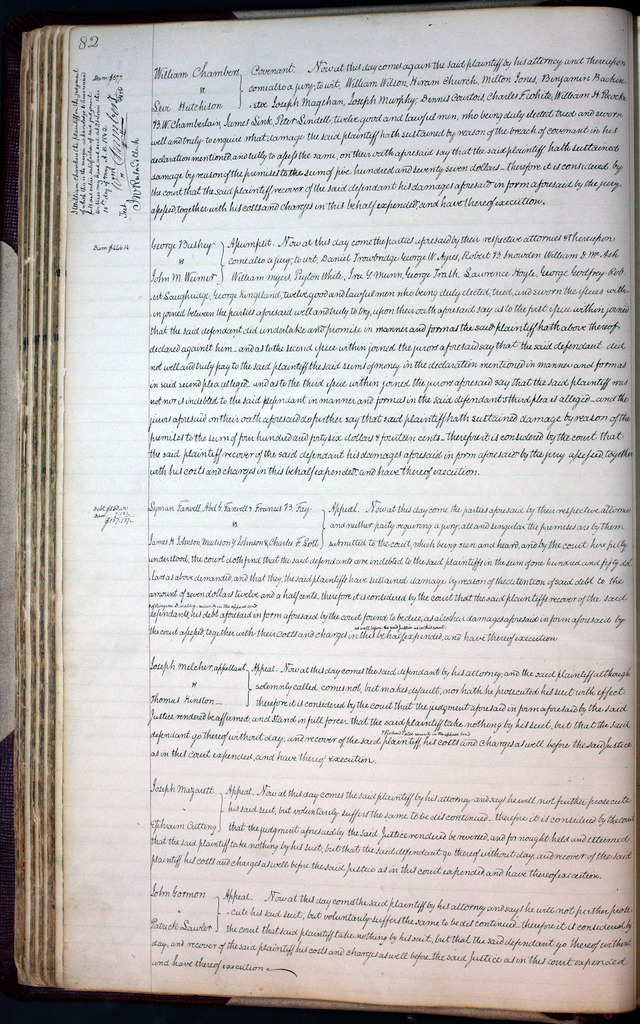 82
William Chambers } Covenant. Now at this day comes again the said plaintiff by his attorney and thereupon
vs comes also a jury, to wit, William Wilson, Hiram Church, Milton Jones, Benjamin
Levi Hutchison Joseph Magehan, Joseph Murphy, Dennis Courtois, Charles F. White, William H.
B. W. Chamberlain, James Sink, Peter Lindell, twelve good and lawful men, who being duly elected, tried and sworn
well and truly to enquire what damage the said plaintiff hath sustained by reason of the breach of covenant in his
declaration mentioned and truly to assess the same, on their oath aforesaid say that the said plaintiff hath sustained
damage by reason of the premises to the sum of five hundred and seventy seven dollars — therefore it is considered by
the court that the said plaintiff recover of the said defendant his damages aforesaid in form aforesaid by the jury
assessed together with his costs and charges in this behalf expended, and have thereof execution.
Dam $446.14
George Bushey } Assumpsit. Now at this day come the parties aforesaid by their respective attornies & thereupon
vs comes also a jury, to wit, Daniel Trowbridge, George W. Ayes, Robert B. Snowden, William D. McAsh
John M. Wimer William Myers, Peyton White, Ira G. Munn, George Trash, Lawrence Hoyle, George Godfrey, Rob-
ert Laughridge, George Kingsland, twelve good and lawful men who being duly elected, tried, and sworn the issues with
in joined between the parties aforesaid well and truly to try, upon their oath aforesaid say as to the first issue within joined
that the said defendant did undertake and promise in manner and form as the said plaintiff hath above thereof
declared against him — and as to the second issue within joined the jurors aforesaid say that the said defendant did
not well and truly pay to the said plaintiff the said sums of money in the declaration mentioned in manner and form as
in said second plea alleged — and as to the third issue within joined the jurors aforesaid say that the said plaintiff was
not nor is indebted to the said defendant in manner and form as in the said defendant's third plea is alleged — and the
jurors aforesaid on their oath aforesaid do further say that said plaintiff hath sustained damage by reason of the
premises to the sum of four hundred and forty six dollars & fourteen cents — therefore it is considered by the court that
the said plaintiff recover of the said defendant his damages aforesaid in form aforesaid by the jury assessed together
with his costs and charges in this behalf expended, and have thereof execution.
Debt $150.00
Dam 7.12½
$157.12½
Lyman Farwell, Abel G. Farwell & Francis B. Fay } Appeal. Now at this day come the parties aforesaid by their respective attornies
vs and neither party requiring a jury, all and singular the premises are by them
James H. Johnson, Madison Y. Johnson & Charles F. Lott submitted to the court, which being seen and heard, and by the court here fully
understood, the court doth find that the said defendants are indebted to the said plaintiffs in the sum of one hundred and fifty dol
lars as above demanded, and that they, the said plaintiffs have sustained damage by reason of the detention of said debt to the
amount of seven dollars twelve and a half cents, therefore it is considered by the court that the said plaintiffs recover of the said
defendants, his debt aforesaid in form aforesaid by the court found to be due, as also their damages aforesaid in form aforesaid by
as well before the said Justice as in this court
the court assessed, together with their costs and charges in this behalf expended, and have thereof execution
Joseph Melcher, appellant } Appeal. Now at this day comes the said defendant by his attorney, and the said plaintiff although
vs solemnly called, comes not, but makes default, nor hath he prosecuted his suit with effect
Thomas Kinston therefore it is considered by the court that the judgment aforesaid in form aforesaid by the said
Justice rendered be affirmed, and stand in full force — that the said plaintiff take nothing by his suit, but that the said
defendant go thereof without day, and recover of the said plaintiff his costs and charges as well before the said Justice
as in this court expended, and have thereof execution.
Joseph Mazarett } Appeal. Now at this day comes the said plaintiff by his attorney and says he will not further prosecute
his said suit, but voluntarily suffers the same to be discontinued. therefore it is considered by the court
Ephraim Cutting that the judgment aforesaid by the said Justice rendered be reversed, and for nought held and esteemed
that the said plaintiff take nothing by his suit, but that the said defendant go thereof without day, and recover of the said
plaintiff his costs and charges as well before the said Justice as in this court expended and have thereof execution.
John Gormon } Appeal. Now at this day comes the said plaintiff by his attorney and says he will not further prose
-cute his said suit, but voluntarily suffers the same to be discontinued. therefore it is considered by
Patrick Lawler the court that said plaintiff take nothing by his suit, but that the said defendant go thereof without
day, and recover of the said plaintiff his costs and charges as well before the said Justice as in this court expended
and have thereof execution